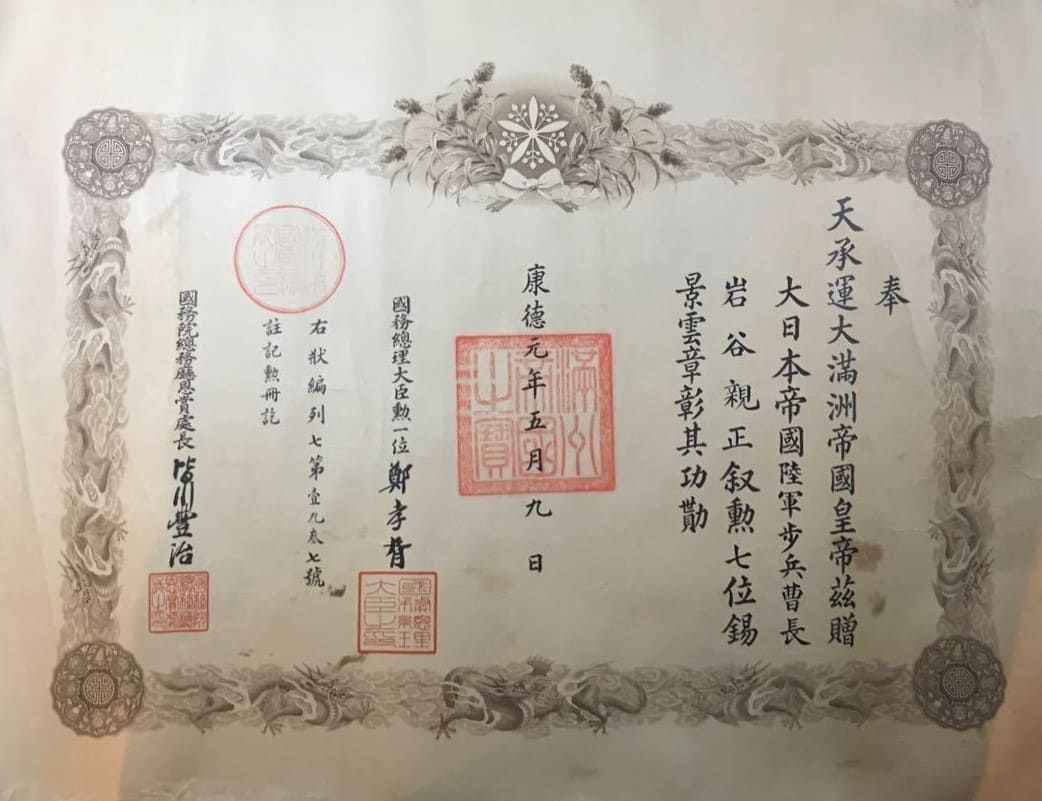 奉
天承運大滿洲帝國皇帝茲贈
大日本帝國陸軍步兵曹長
岩谷親正叙勲七位錫
景雲章彰其功勩
康德元年五月九日
滿洲帝國之寶
國務總理大臣勲一位 鄭孝胥
國務總理大臣之印
右狀編列七第壹九叁七號
註記勲冊訖
國務院總務廳恩賞處長 皆川豐治